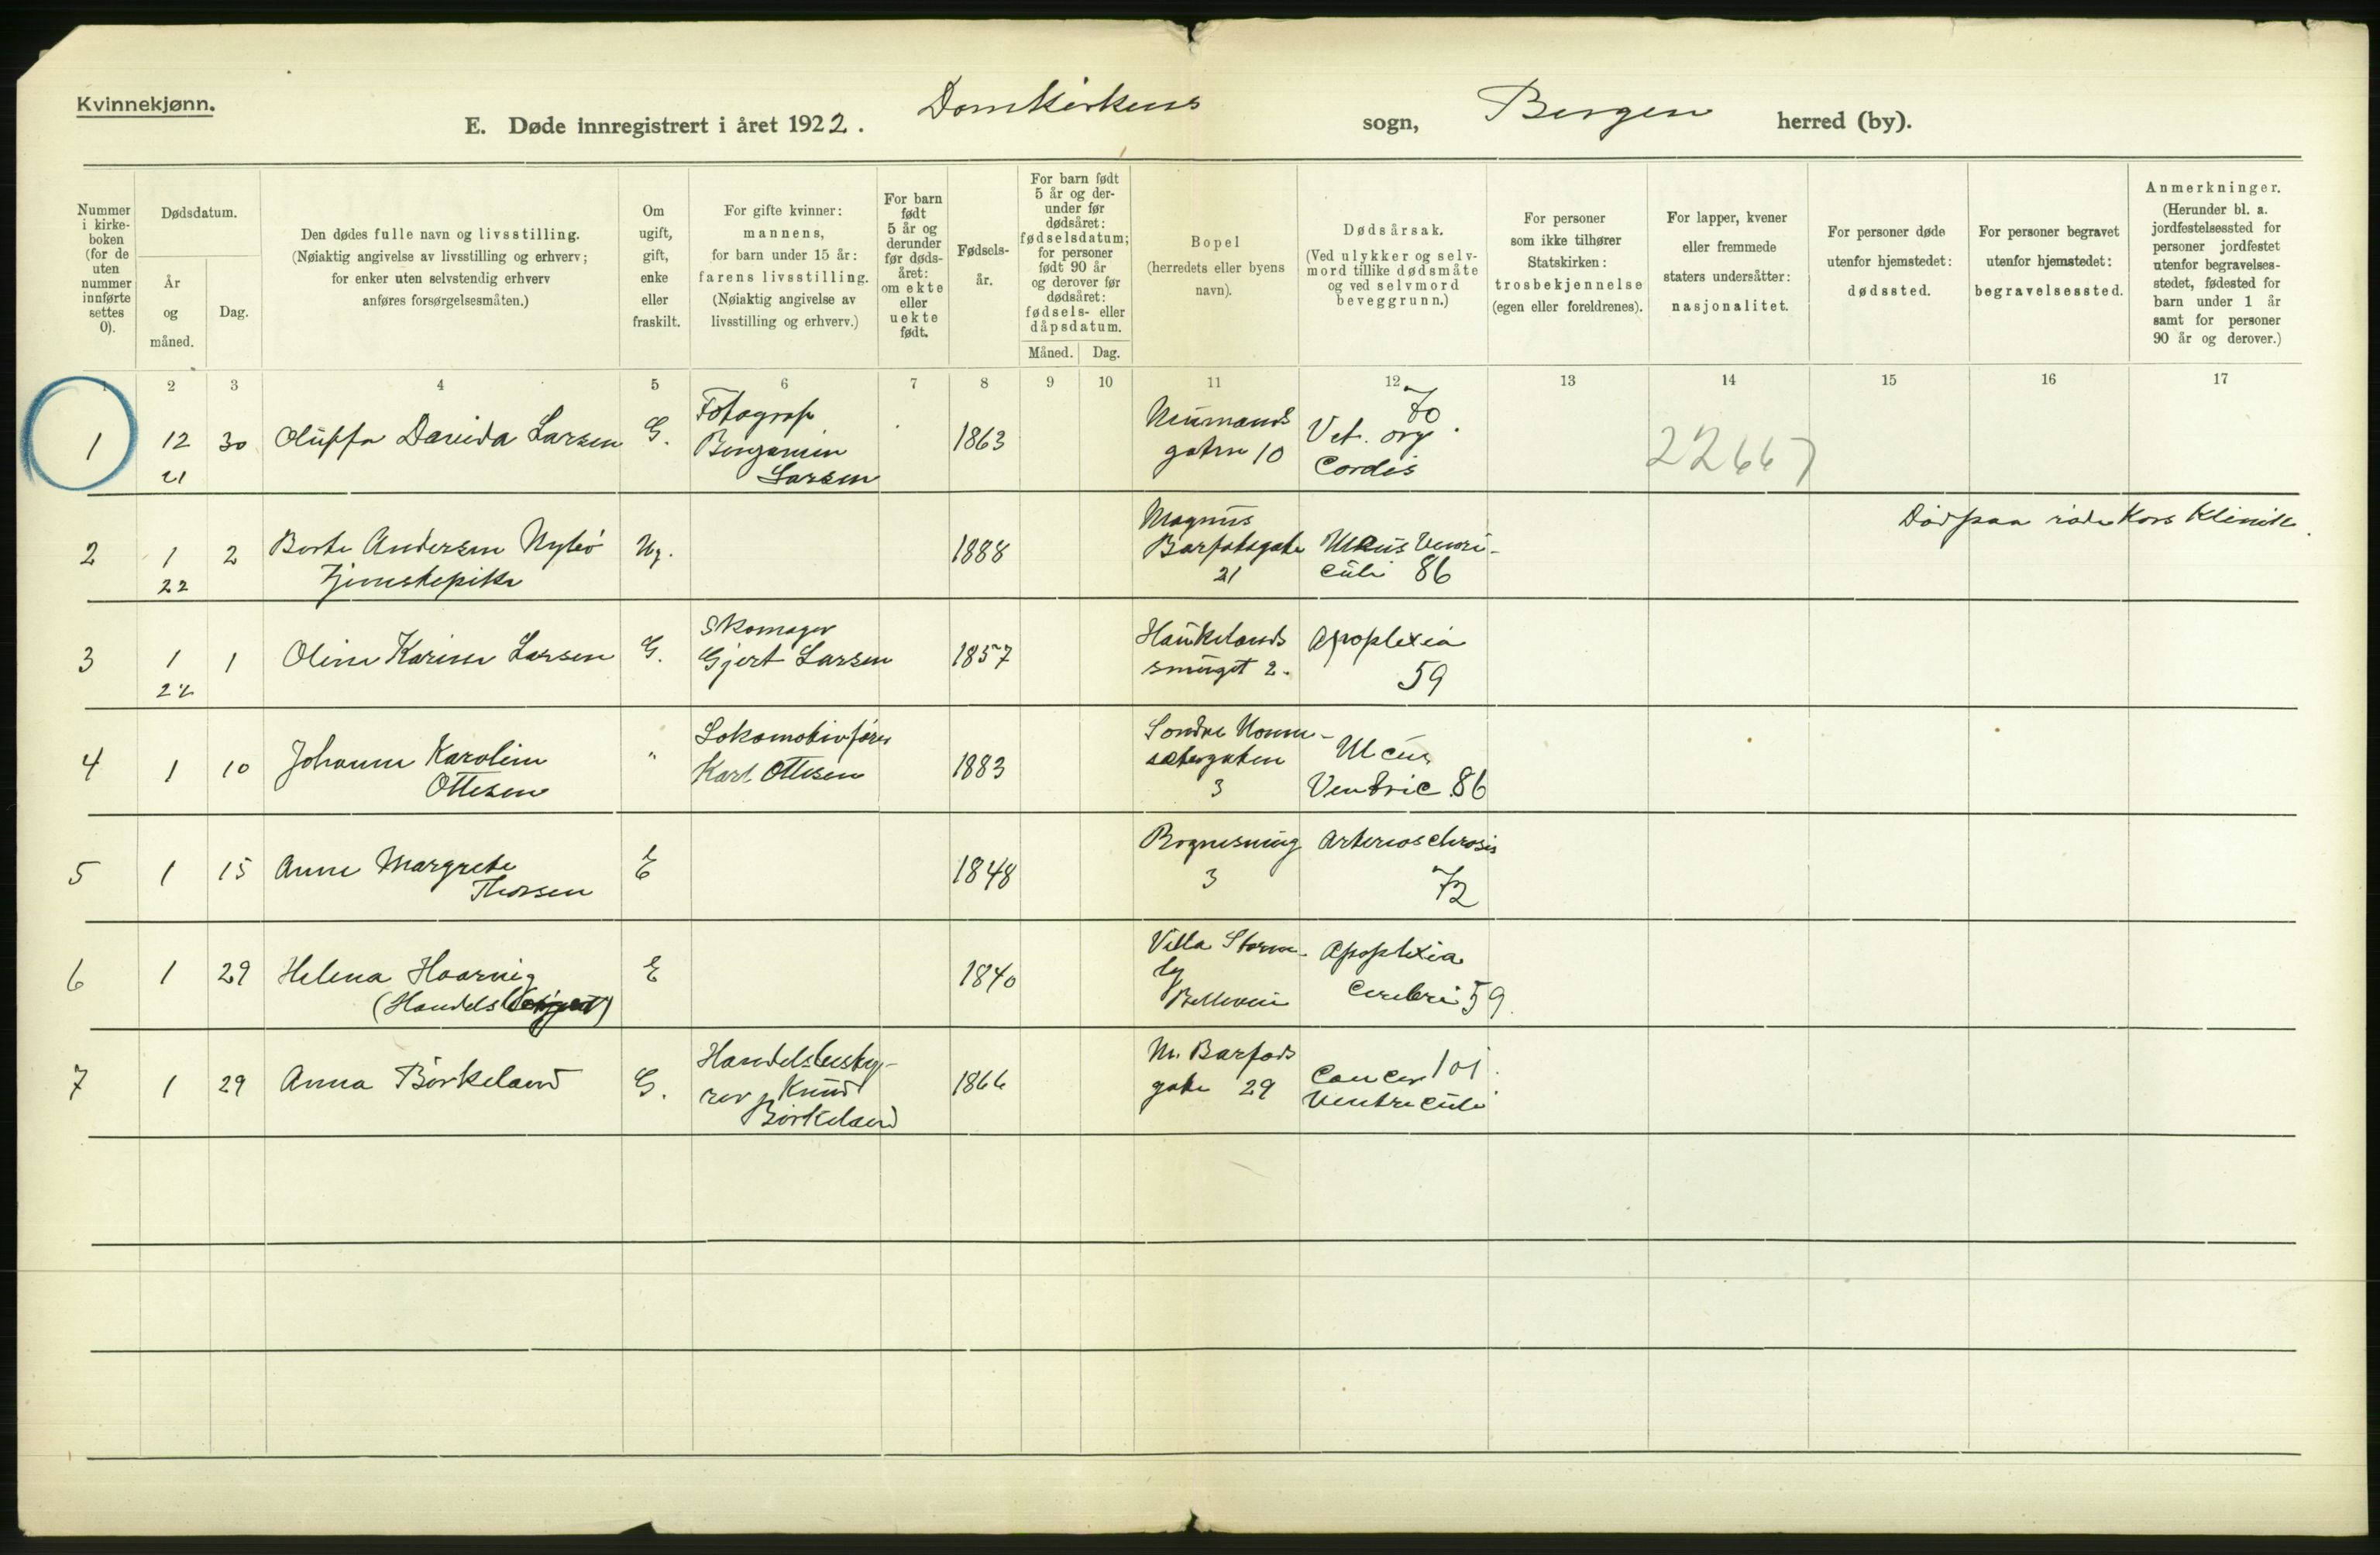 Kvinnekjønn.
E. Døde innregistrert i året 1922. Domkirkens sogn, Bergen herred (by).
Nummer i kirke-boken (for de uten nummer innførte settes 0).
Dødsdatum.
År og måned.
Dag.
Den dødes fulle navn og livsstilling.
(Nøiaktig angivelse av livsstilling og erhverv;
for enker uten selvstendig erhverv
anføres forsørgelsesmåten.)
Om ugift, gift, enke eller fraskilt.
For gifte kvinner:
mannens,
for barn under 15 år:
farens livsstilling.
(Nøiaktig angivelse av
livsstilling og erhverv.)
For barn født 5 år og derunder før døds-året: om ekte eller uekte født.
Fødsels-år.
For barn født 5 år og der-under før dødsåret: fødselsdatum; for personer født 90 år og derover før dødsåret: fødsels- eller dåpsdatum.
Måned. Dag.
Bopel
(herredets eller byens
navn).
Dødsårsak.
(Ved ulykker og selv-
mord tillike dødsmåte
og ved selvmord
beveggrunn.)
For personer
som ikke tilhører
Statskirken:
trosbekjennelse
(egen eller foreldrenes).
For lapper, kvener
eller fremmede
staters undersåtter:
nasjonalitet.
For personer døde
utenfor hjemstedet:
dødssted.
For personer begravet
utenfor hjemstedet:
begravelsessted.
Anmerkninger.
(Herunder bl. a.
jordfestelsessted for
personer jordfestet
utenfor begravelses-
stedet, fødested for
barn under 1 år
samt for personer
90 år og derover.)
1 2 3 4 5 6 7 8 9 10 11 12 13 14 15 16 17
1 12 21 30 Oluffa Davida Larsen G. Fotograf Benjamin Larsen 1863 Neumands gaten 10 Vit. org. Cordis 70 22667
2 1 22 2 Berte Andersen Nybö Tjenestepike Ug. 1888 Magnus Barfotsgate 21 Ulcus Ventri-culi 86 Död paa röde Kors Klinik.
3 1 22 1 Oline Karine Larsen G. Skomager Gjert Larsen 1857 Haukelands smuget 2. Apoplexia 59
4 1 10 Johanne Karoline Ottesen " Lokomotivförer Karl Ottesen 1883 Söndre 3 Ulcus Ventric 86
5 1 15 Anne Margrete Thorsen E 1848 3 Arteriosclerosis 72
6 1 29 Helena Haarnig (Handels E 1840 Villa Apoplexia Cerebri 59
7 1 29 Anna Birkeland G. Handelsbesty-rer Knud Birkeland 1866 M. Barfods gate 29 Cancer Ventriculi 101